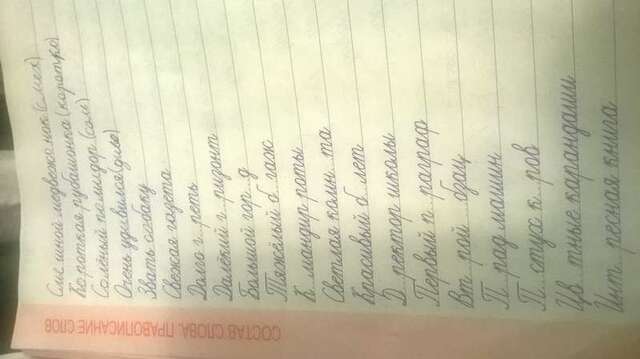 СОСТАВ СЛОВА. ПРАВОПИСАНИЕ СЛОВ
Смешной медвежонок (смех)
Короткая рубашка (коротко)
Солёный помидор (соль)
Очень удивился
Звать собаку
Свежая газета
Долго г..реть
Далёкий г..ризонт
Большой гор..д
Тяжёлый б..гаж
К..мандир роты
Светлая комн..та
Красивый б..лет
Д..ректор школы
Первый п..раграф
Вт..рой ..бзац
П..рад машин
П..стух к..ров
Цв..тные карандаши
Инт..ресная книга